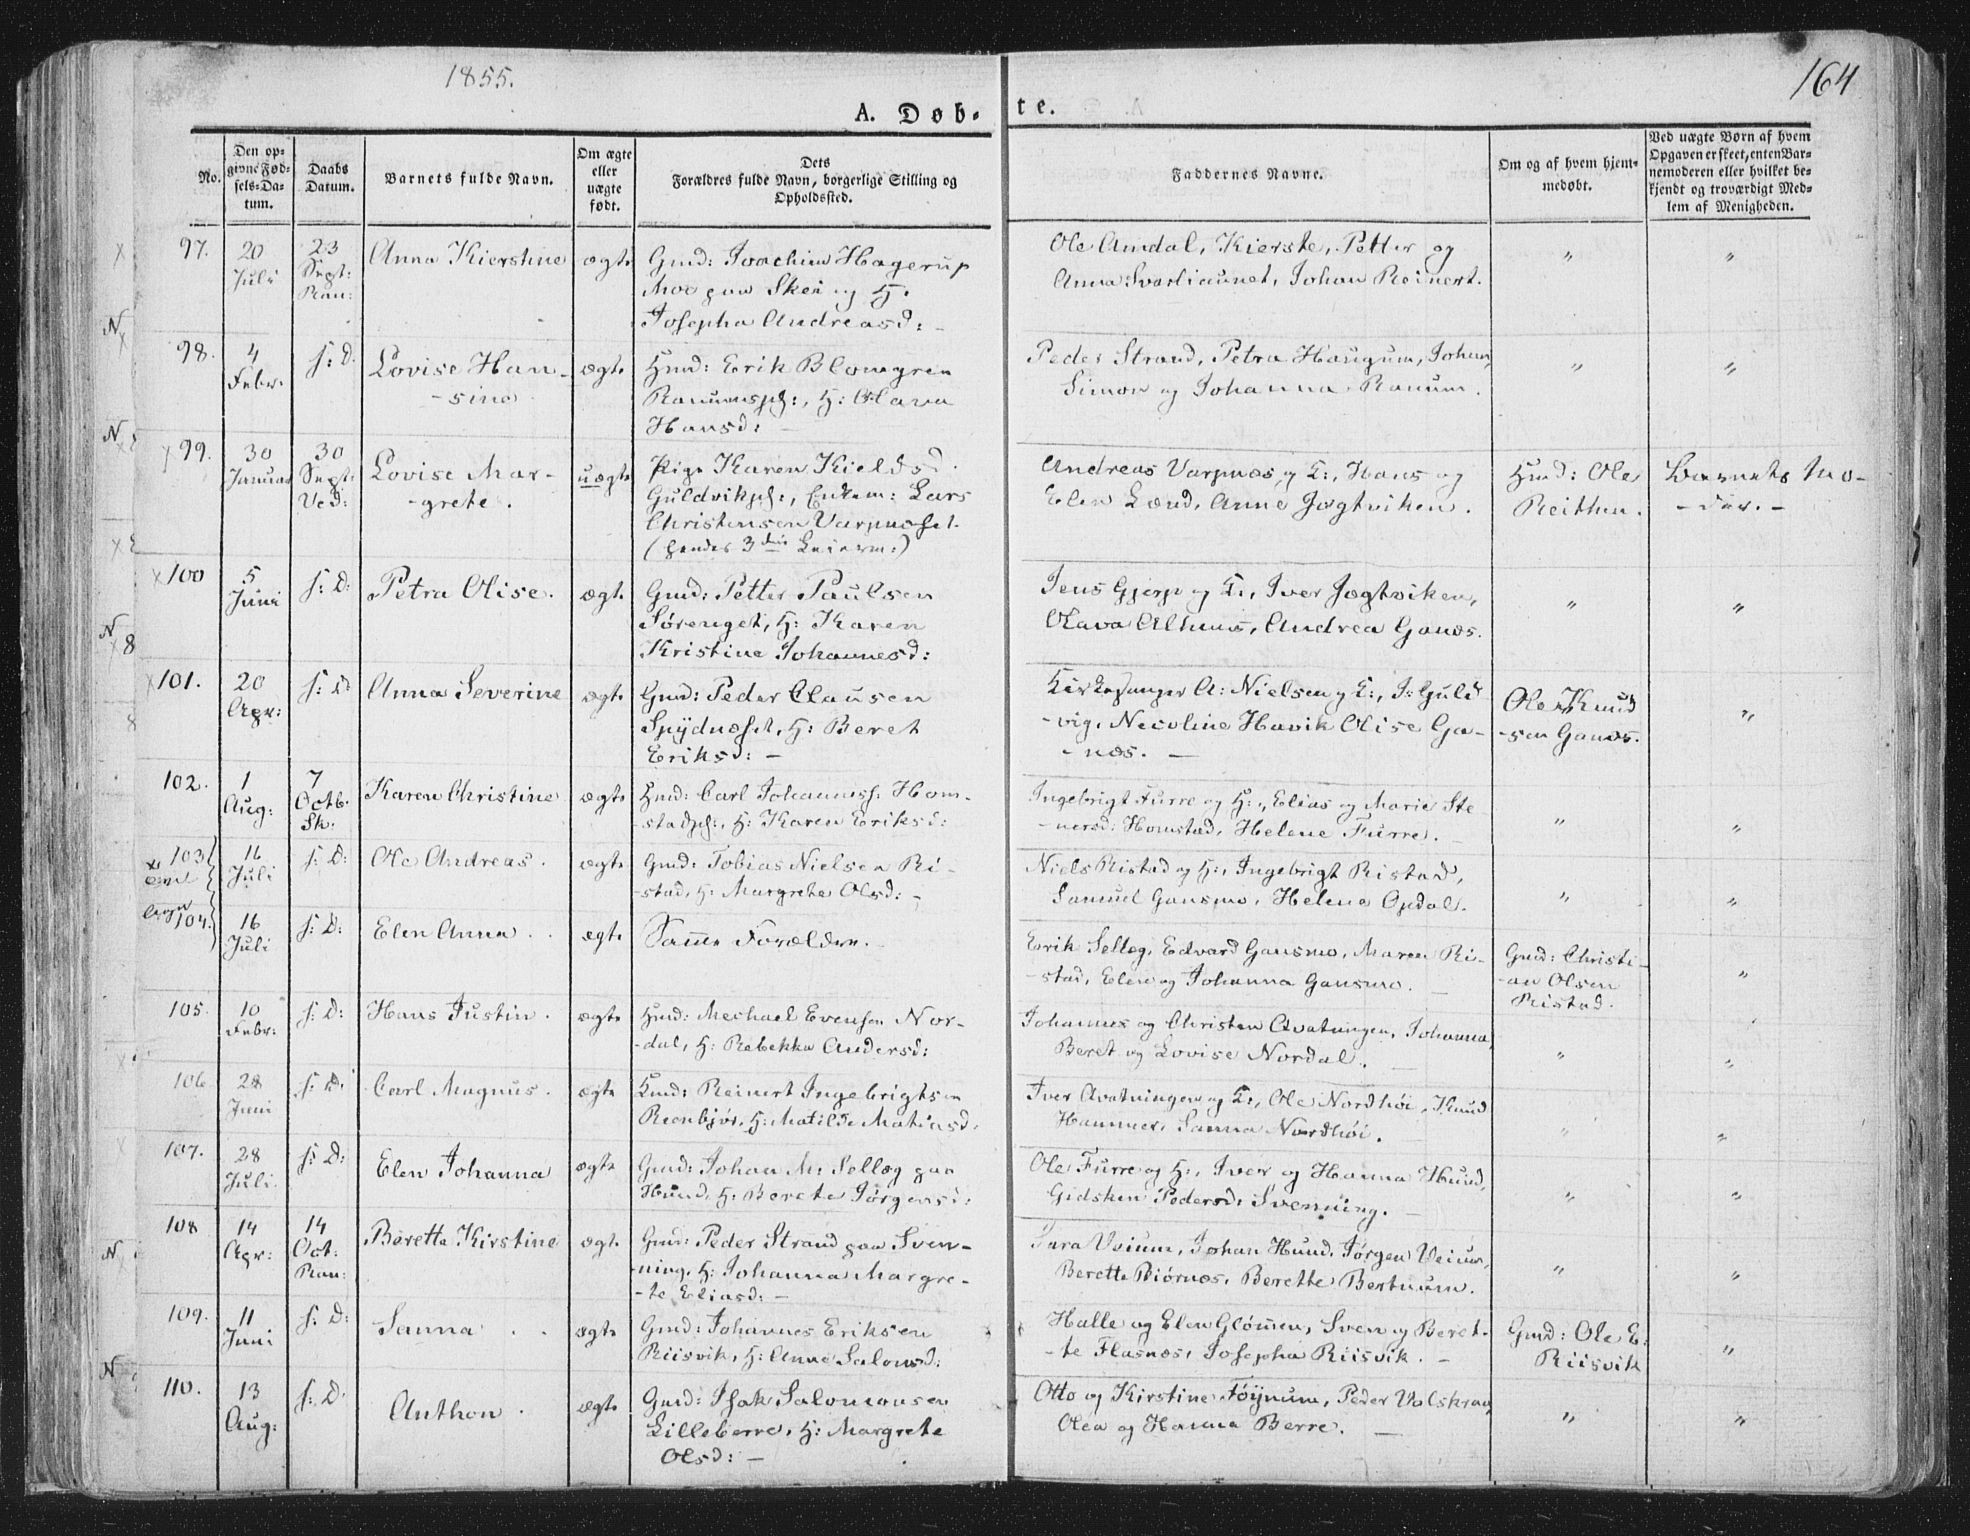 1855.
164
A. Døb-
te.
No.
Den op-
givne Fød-
sels-Da-
tum.
Daabs
Datum.
Barnets fulde Navn.
Om ægte
eller
uægte
født.
Dets
Forældres fulde Navn, borgerlige Stilling og
Opholdssted.
Faddernes Navne.
Om og af hvem hjem-
medøbt.
Ved uægte Børn af hvem
Opgaven er skeet, enten Bar-
nemoderen eller hvilket be-
kjendt og troværdigt Med-
lem af Menigheden.
97.
20
Juli
23
Sept:
Ran:
Anna Kierstine
ægte
Gmd: Joachim Hagerup
Moe paa Skei og H.
Josepha Andreasd: -
Ole Amdal, Kierste, Petter og
Anna Svarliaunet, Johan Reinert.
"
"
98.
4
Febr.
s: D.
Lovise Han-
-sine
ægte
Hmd: Erik Blomgren
Ranumspl:, H: Olava
Hansd:
Peder Strand, Petra Haugum, Johan,
Simon og Johanna Ranum.
"
"
99.
30
Januar
30
Sept:
Ved:
Lovise Mar-
-grete.
uægte
Pige Karen Kieldsd.
Guldvikpl:, Enkem: Lars
Christensen Varpneset.
(hendes 3die Leierm:)
Andreas Varpnes og K:, Hans og
Elen Lænd, Anne Jægtviken.
Hmd: Ole
Reithen.
Barnets Mo-
-der. -
100
5
Juni
s: D:
Petra Olise.
ægte
Gmd: Petter Paulsen
Sørenget, H: Karen
Kristine Johannesd:
Jens Gjerp og K:, Iver Jægtviken,
Olava Alhuus, Andrea Ganæs.
"
"
101.
20
Apr:
s: D:
Anna Severine
ægte
Gmd: Peder Clausen
Spydnæset, H: Beret
Eriksd: -
Kirkesanger A: Nielsen og K:, J: Guld-
-vig, Nicoline Havik Olise Ga-
-næs. -
Ole Knud
-sen Ganæs.
"
102.
1
Aug:
7
Octb.
Sk.
Karen Christine
ægte
Hmd: Carl Johanness: Hom-
stadpl:, H: Karen Eriksd:
Ingebrigt Furre og H:, Elias og Marie Ste
-nersd: Homstad, Helene Furre.
"
"
103
16
Juli
s: D:
Ole Andreas.
ægte
Gmd: Tobias Nielsen Ri-
-stad, H: Margrete Olsd: -
Niels Ristad og H:, Ingebrigt Ristad,
Samuel Gansmo, Helena Opdal.
"
"
104.
16
Juli
s: D:
Elen Anna.
ægte
Samme Forældre.
Erik Sellæg, Edvard Gansmo, Maren Ri-
-stad, Elen og Johanna Gansmo.
Gmd: Christi-
-an Olsen
Ristad.
"
105.
10
Febr:
s: D:
Hans Justin.
ægte
Hmd: Mechael Evensen Nor-
-dal, H: Rebekka Andersd:
Johannes og Christen Avatningen, Johanna,
Beret og Lovise Nordal.
"
"
106
28
Juni
s: D.
Carl Magnus.
ægte
Hmd: Reinert Ingebrigtsen
Reenbjør, H: Matilde Matiasd.
Iver Avatningen og K:, Ole Nordhøi, Knud
Hammer, Sanna Nordhøi.
"
"
107.
28
Juli.
s: D:
Elen Johanna
ægte
Gmd: Johan M: Sellæg paa
Hund, H: Berete Jørgensd:
Ole Furre og H:, Iver og Hanna Hund,
Gidsken Pedersd: Svenning.
"
"
108
14
Apr:
14
Oct:
Ran:
Berette Kirstine
ægte
Gmd: Peder Strand paa Sven-
-ning, H: Johanna Margre-
-te Eliasd: -
Sara Veium, Johan Hund, Jørgen Veium,
Berette Biørnæs, Berette Bertnum.
"
"
109.
11
Juni
s: D:
Sanna
ægte
Gmd: Johannes Eriksen
Riisvik, H: Anne Salomd:
Halle og Elen Glømen, Sven og Beret-
-te Flasnæs, Josepha Riisvik. -
Gmd: Ole E:
Riisvik
"
110.
13
Aug:
s: D.
Anthon.
ægte
Gmd: Isak Salomonsen
Lilleberre, H: Margrete
Olsd: -
Otto og Kirstine Føynum, Peder Valskraa,
Olea og Hanna Berre. -
"
"